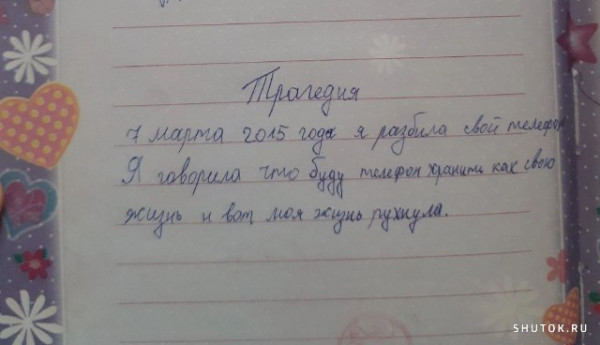 Трагедия
7 марта 2015 года я разбила свой телефон
Я говорила что буду телефон хранить как свою
жизнь и вот моя жизнь рухнула.
SHUTOK.RU